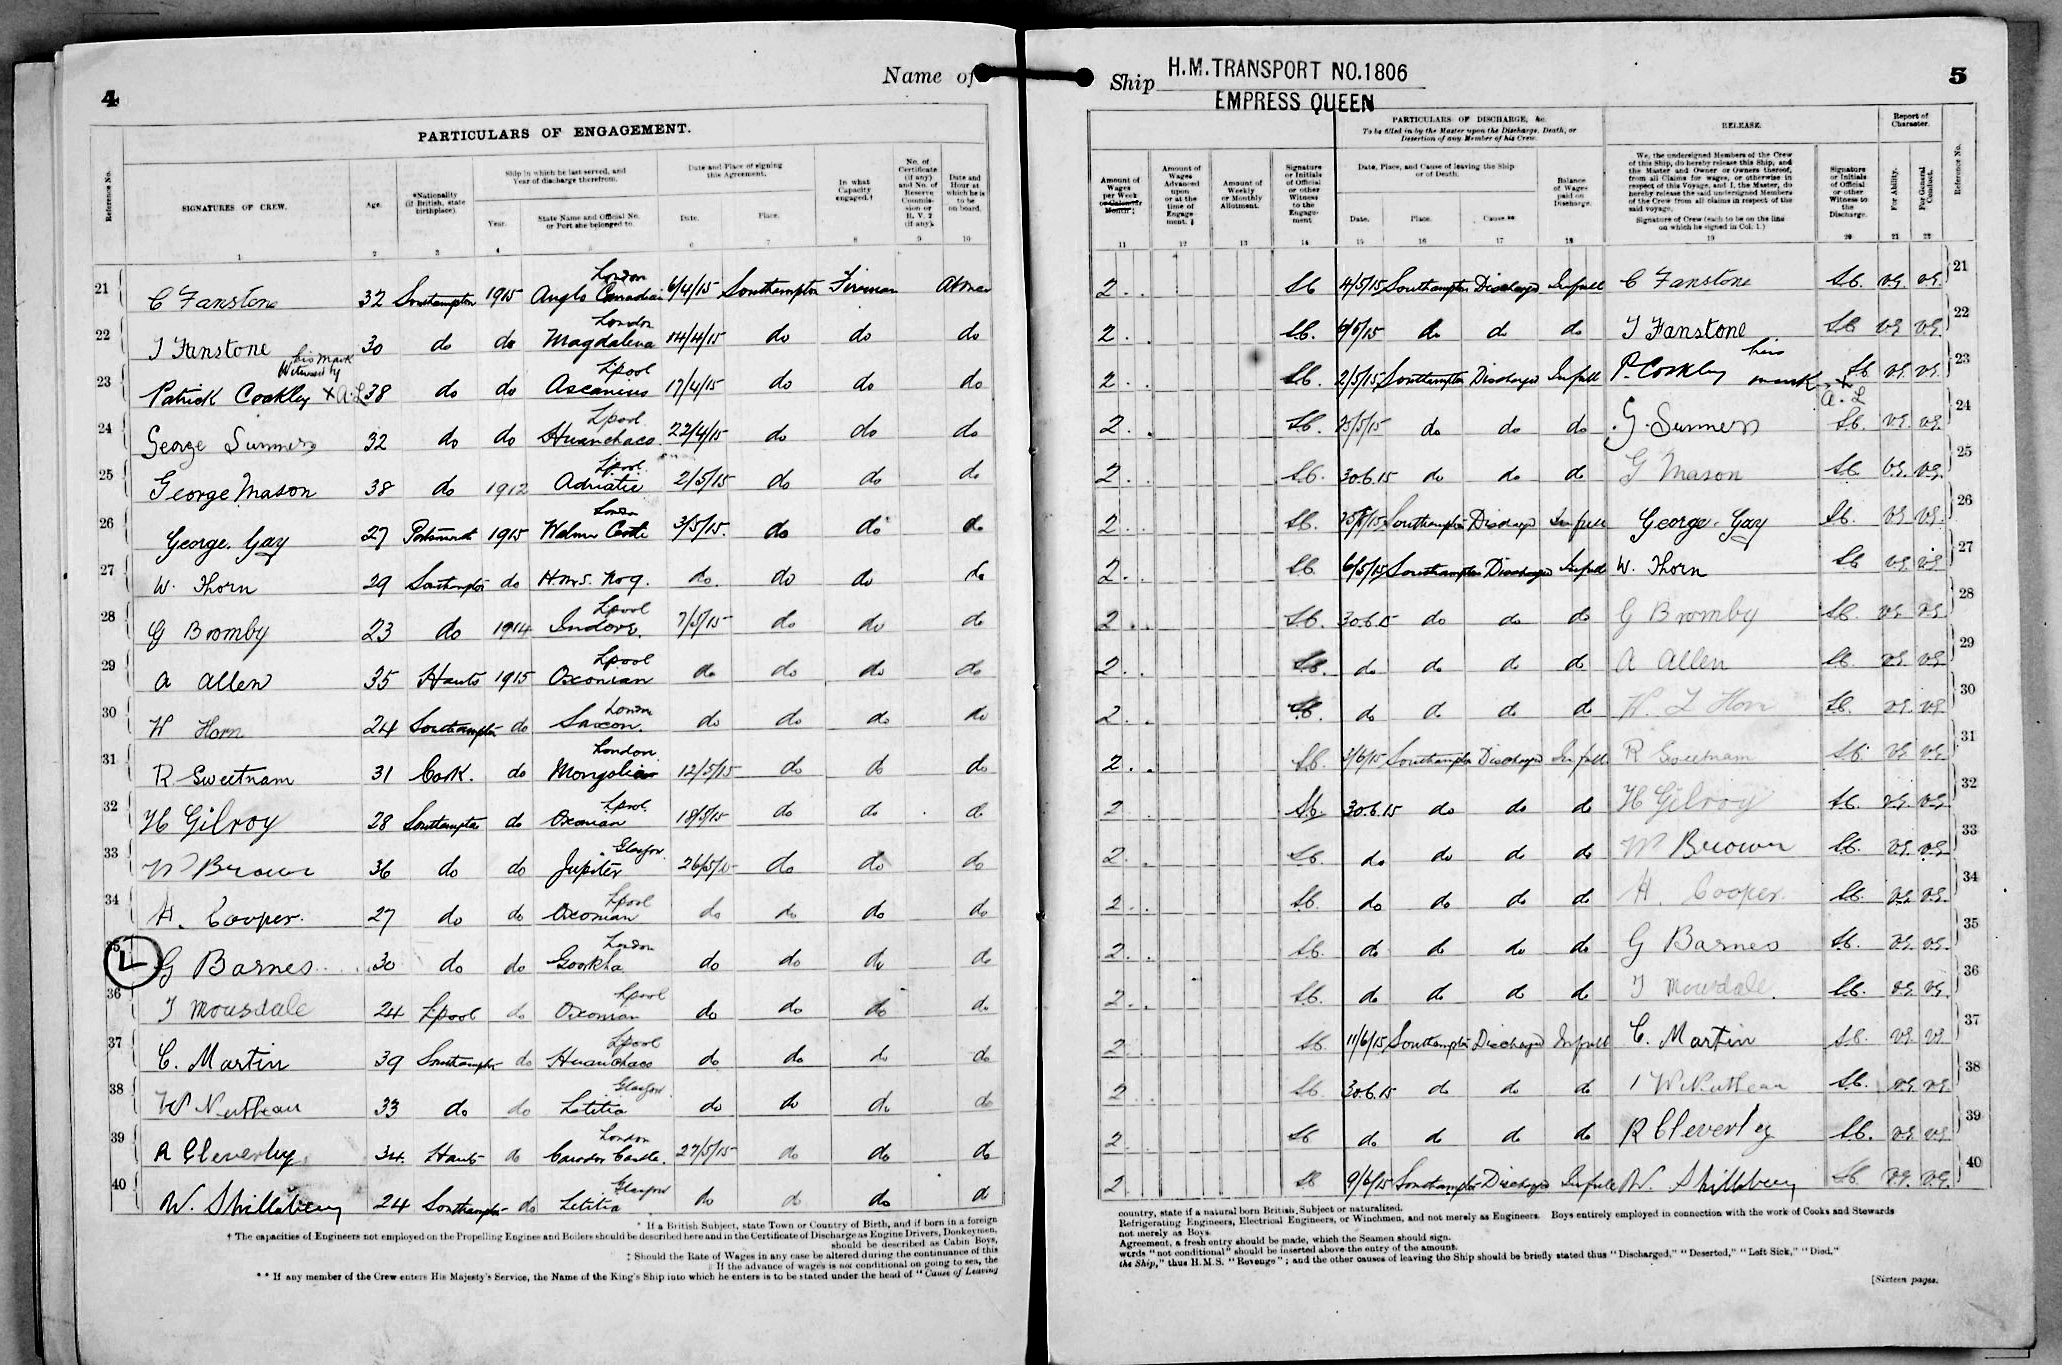 4
Name of
PARTICULARS OF ENGAGEMENT.
Reference No.
SIGNATURES OF CREW.
Age.
*Nationality (if British, state birthplace).
Ship in which he last served, and Year of discharge therefrom.
Year.
State Name and Official No. or Port she belonged to.
Date and Place of signing this Agreement.
Date.
Place.
In what Capacity engaged.†
No. of Certificate (if any) and No. of Reserve Commission or R. V. 2 (if any).
Date and Hour at which he is to be on board.
1 2 3 4 5 6 7 8 9 10
21 C Fanstone 32 Southampton 1915 London Anglo Canadian 6/4/15 Southampton Fireman At once
22 J Fanstone 30 do do London Magdalena 14/4/15 do do do
23 Patrick Coakley his mark Witnessed by X A.L 38 do do Lpool Ascanius 17/4/15 do do do
24 George Sumners 32 do do Lpool Huanchaco 22/4/15 do do do
25 George Mason 38 do 1912 Lpool Adriatic 2/5/15 do do do
26 George Gay 27 Portsmouth 1915 London Walmer Castle 3/5/15. do do do
27 W. Thorn 29 Southampton do H.M.S. Rog. do. do do do
28 G Bromby 23 do 1914 Lpool Indore. 7/5/15 do do do
29 A Allen 35 Hants 1915 Lpool Oxonian do do do do
30 W Horn 24 Southampton do London Saxon. do do do do
31 R Sweetnam 31 Cork. do London Mongolian 12/5/15 do do do
32 H Gilroy 28 Southampton do Lpool Oxonian 18/5/15 do do do
33 W Brown 36 do do Glasgow Jupiter 26/5/15 do do do
34 H. Cooper. 27 do do Lpool Oxonian do do do do
35 L G Barnes 30 do do London Goorkha do do do do
36 J Mousdale 24 Lpool do Lpool Oxonian do do do do
37 C. Martin 39 Southampton do Lpool Huanchaco do do do do
38 W 33 do do Glasgow Letitia do do do do
39 R Cleverley 34. Hants do London Cawdor Castle. 27/5/15 do do do
40 W. Shillabeer 24 Southampton do Glasgow Letitia do do do do
* If a British Subject, state Town or Country of Birth, and if born in a foreign
† The capacities of Engineers not employed on the Propelling Engines and Boilers should be described here and in the Certificate of Discharge as Engine Drivers, Donkeymen,
should be described as Cabin Boys,
‡ Should the Rate of Wages in any case be altered during the continuance of this
If the advance of wages is not conditional on going to sea, the
** If any member of the Crew enters His Majesty's Service, the Name of the King's Ship into which he enters is to be stated under the head of "Cause of Leaving
5
Ship H.M.TRANSPORT NO.1806
EMPRESS QUEEN
PARTICULARS OF DISCHARGE, &c.
To be filled in by the Master upon the Discharge, Death, or Desertion of any Member of his Crew.
RELEASE.
Report of Character.
Amount of Wages per Week or Calendar Month ‡
Amount of Wages Advanced upon or at the time of Engagement.
Amount of Weekly or Monthly Allotment.
Signature or Initials of Official or other Witness to the Engagement
Date, Place, and Cause of leaving the Ship or of Death.
Date.
Place.
Cause.**
Balance of Wages paid on Discharge.
We, the undersigned Members of the Crew of this Ship, do hereby release this Ship, and the Master and Owner or Owners thereof, from all Claims for wages, or otherwise in respect of this Voyage, and I, the Master, do hereby release the said undersigned Members of the Crew from all claims in respect of the said voyage.
Signature of Crew (each to be on the line on which he signed in Col. 1.)
Signature or Initials of Official or other Witness to the Discharge.
For Ability.
For General Conduct.
Reference No.
11 12 13 14 15 16 17 18 19 20 21 22
2 4/5/15 Southampton Discharged In full C Fanstone VG. VG. 21
2 6/5/15 do do do J Fanstone VG VG. 22
2 2/5/15 Southampton Discharged In full P. Coakley his mark X A.L VG VG. 23
2 25/5/15 do do do G. Sumners VG. VG. 24
2 30.6.15 do do do G Mason VG. VG. 25
2 Southampton Discharged In full George. Gay VG VG. 26
2 6/5/15 Southampton Discharged In full W. Thorn VG VG. 27
2 30.6.15 do do do G Bromby VG VG. 28
2 do do do do A Allen VG. VG. 29
2 do do do do VG. VG. 30
2 Southampton Discharged In full R Sweetnam VG VG. 31
2 30.6.15 do do do H Gilroy VG. VG. 32
2 do do do do W Brown VG. VG. 33
2 do do do do H. Cooper. VG. VG. 34
2 do do do do G Barnes VG. VG. 35
2 do do do do J Mousdale. VG. VG. 36
2 11/6/15 Southampton Discharged In full C. Martin VG. VG. 37
2 30.6.15 do do do W VG. VG. 38
2 do do do do R Cleverley VG. VG. 39
2 9/6/15 Southampton Discharged In full W. Shillabeer VG. VG. 40
country, state if a natural born British Subject or naturalized.
Refrigerating Engineers, Electrical Engineers, or Winchmen, and not merely as Engineers. Boys entirely employed in connection with the work of Cooks and Stewards
not merely as Boys.
Agreement, a fresh entry should be made, which the Seamen should sign.
words "not conditional" should be inserted above the entry of the amount.
the Ship," thus H.M.S. "Revenge"; and the other causes of leaving the Ship should be briefly stated thus "Discharged," "Deserted," "Left Sick," "Died."
[Sixteen pages.